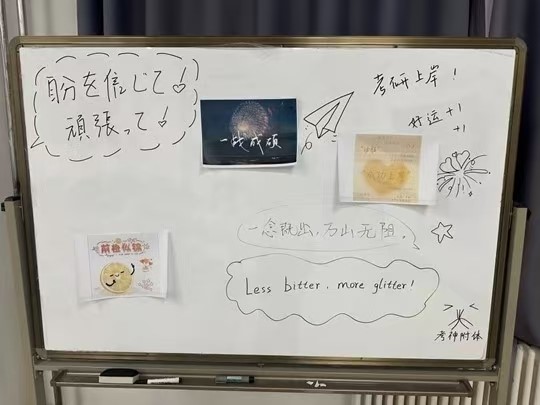 自分を信じて!
頑張って!
一战成硕
考研上岸!
好运 +1
+1
一念既出,万山无阻.
前程似锦
Less bitter, more glitter!
考神附体